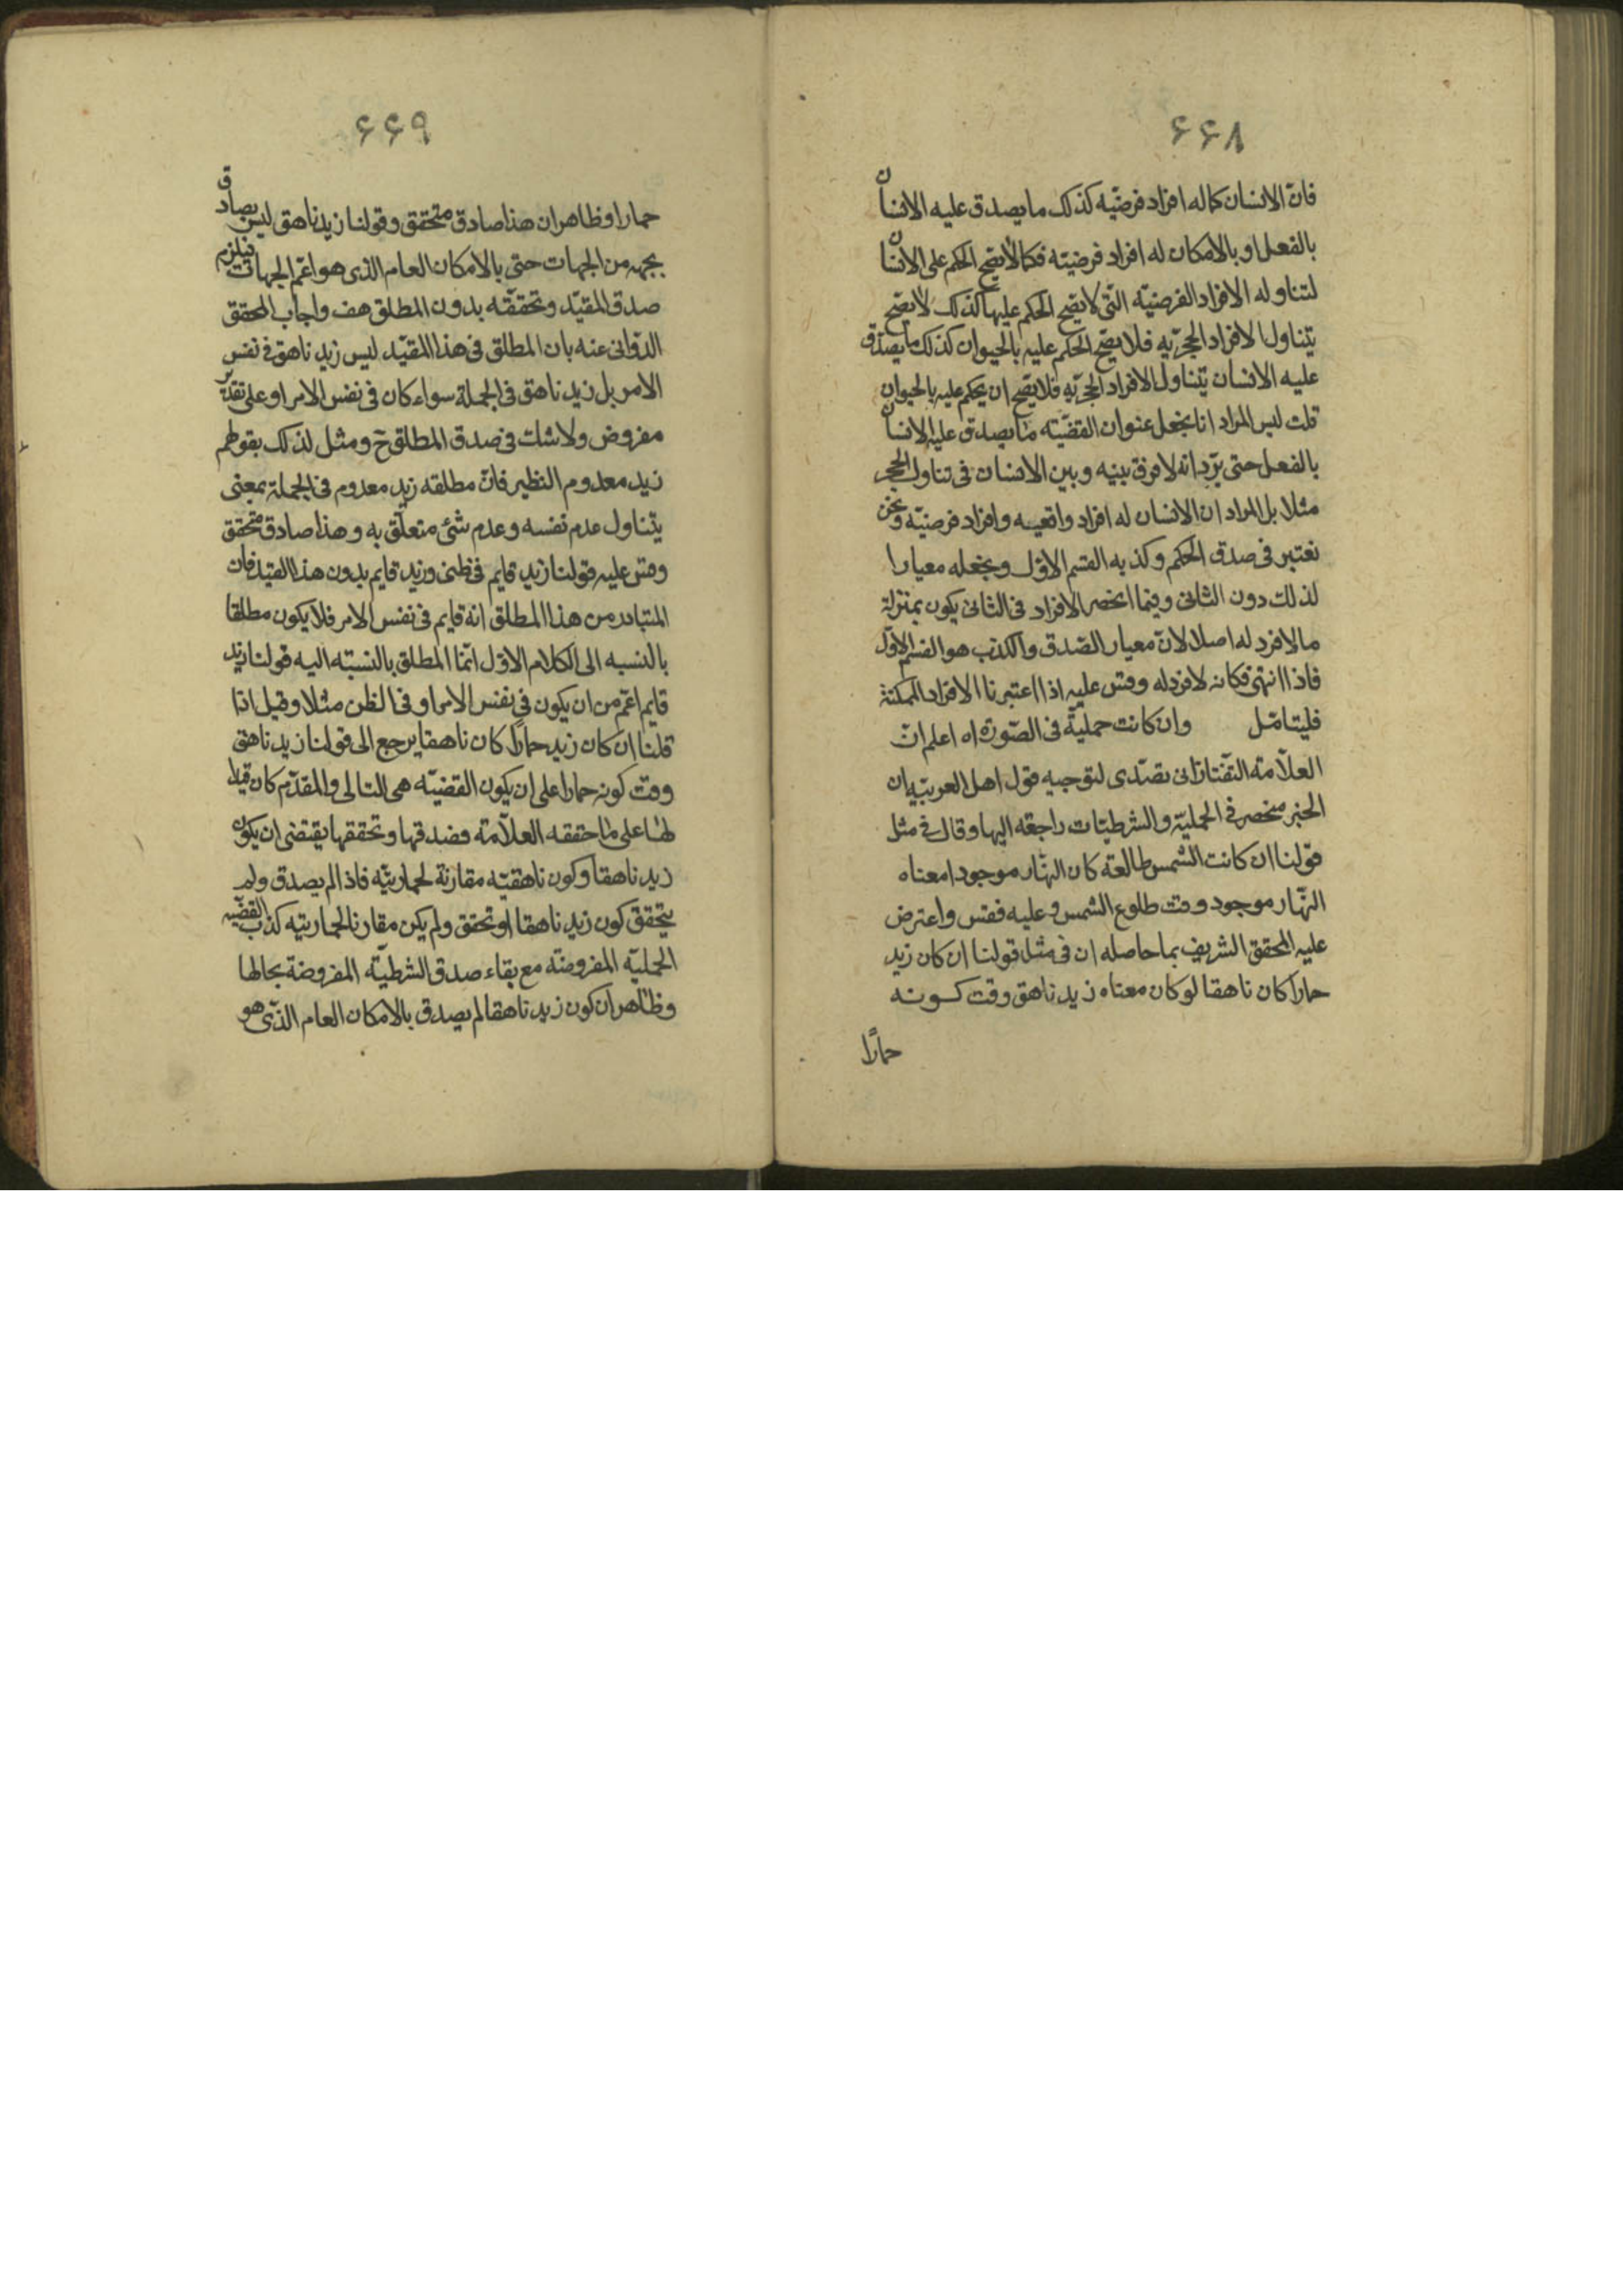 ۶۶۸
فان الانسان كما له افراد فرضيّه كذلك ما يصدق عليه الانسان
بالفعل او بالامكان له افراد فرضيته فكما لا يصح الحكم على الانسان
لتناوله الافراد الفرضيّه التّى لا يصح الحكم عليها كذلك لا يصح
يتناول الافراد الحجريّه فلا يصح الحكم عليه بالحيوان كذلك ما يصدق
عليه الانسان يتناول الافراد الحجريّه فلا يصح ان يحكم عليه بالحيوان
قلت ليس المراد انا نجعل عنوان القضيّه ما يصدق عليه الانسان
بالفعل حتى يرد انه لا فرق بينه وبين الانسان فى تناول الحجر
مثلا بل المراد ان الانسان له افراد واقعيه وافراد فرضيّه ونحن
نعتبر فى صدق الحكم وكذبه القسم الاوّل ونجعله معيارا
لذلك دون الثانى وفيما انحصر الافراد فى الثانى يكون بمنزلة
ما لا فرد له اصلا لانّ معيار الصّدق والكذب هو القسم الاوّل
فاذا انتهى فكانه لا فرد له وقس عليه اذا اعتبرنا الافراد الممكنة
فليتامّل وان كانت حمليّة فى الصّورة اه اعلم انّ
العلاّمة التّفتازانى تصدّى لتوجيه قول اهل العربيّه ان
الخبر منحصر فى الحمليّة والشرطيّات راجعه اليها وقال فى مثل
قولنا ان كانت الشمس طالعة كان النهّار موجودا معناه
النهّار موجود وقت طلوع الشمس وعليه فقس واعترض
عليه المحقق الشريف بما حاصله ان فى مثل قولنا ان كان زيد
حمارا كان ناهقا لو كان معناه زيد ناهق وقت كونه
حمارًا
۶۶۹
حمارا وظاهر ان هذا صادق متحقق وقولنا زيد ناهق ليس بصادق
بجهه من الجهات حتى بالامكان العام الذى هو اعّم الجهات فيلزم
صدق المقيّد وتحققه بدون المطلق هف واجاب المحقق
الدوّانى عنه بان المطلق فى هذا المقيّد ليس زيد ناهق فى نفس
الامر بل زيد ناهق فى الجملة سواء كان فى نفس الامر او على تقدير
مفروض ولا شك فى صدق المطلق ح ومثل لذلك بقولهم
زيد معدوم النظير فانّ مطلقه زيد معدوم فى الجملة بمعنى
يتناول عدم نفسه وعدم شئ متعلّق به وهذا صادق متحقق
وقس عليه قولنا زيد قايم فى ظنى وزيد قايم بدون هذا القيد فان
المتبادر من هذا المطلق انه قايم فى نفس الامر فلا يكون مطلقا
بالنسبه الى الكلام الاوّل انّما المطلق بالنسبّه اليه قولنا زيد
قايم اعّم من ان يكون فى نفس الامر او فى الظن مثلا وقيل اذا
قلنا ان كان زيد حمارًا كان ناهقا يرجع الى قولنا زيد ناهق
وقت كونه حمارا على ان يكون القضيّه هى التالى والمقدّم كان قيدا
لها على ما حققه العلاّمة فصدقها وتحققها يقتضى ان يكون
زيد ناهقا وكون ناهقيّته مقارنة لحماريّته فاذا لم يصدق ولم
يتحقق كون زيد ناهقا او تحقق ولم يكن مقارنا لحماريته كذب القضيّه
الحمليّه المفروضة مع بقاء صدق الشرطيّه المفروضة بحالها
وظاهر ان كون زيد ناهقا لم يصدق بالامكان العام الذّى هو